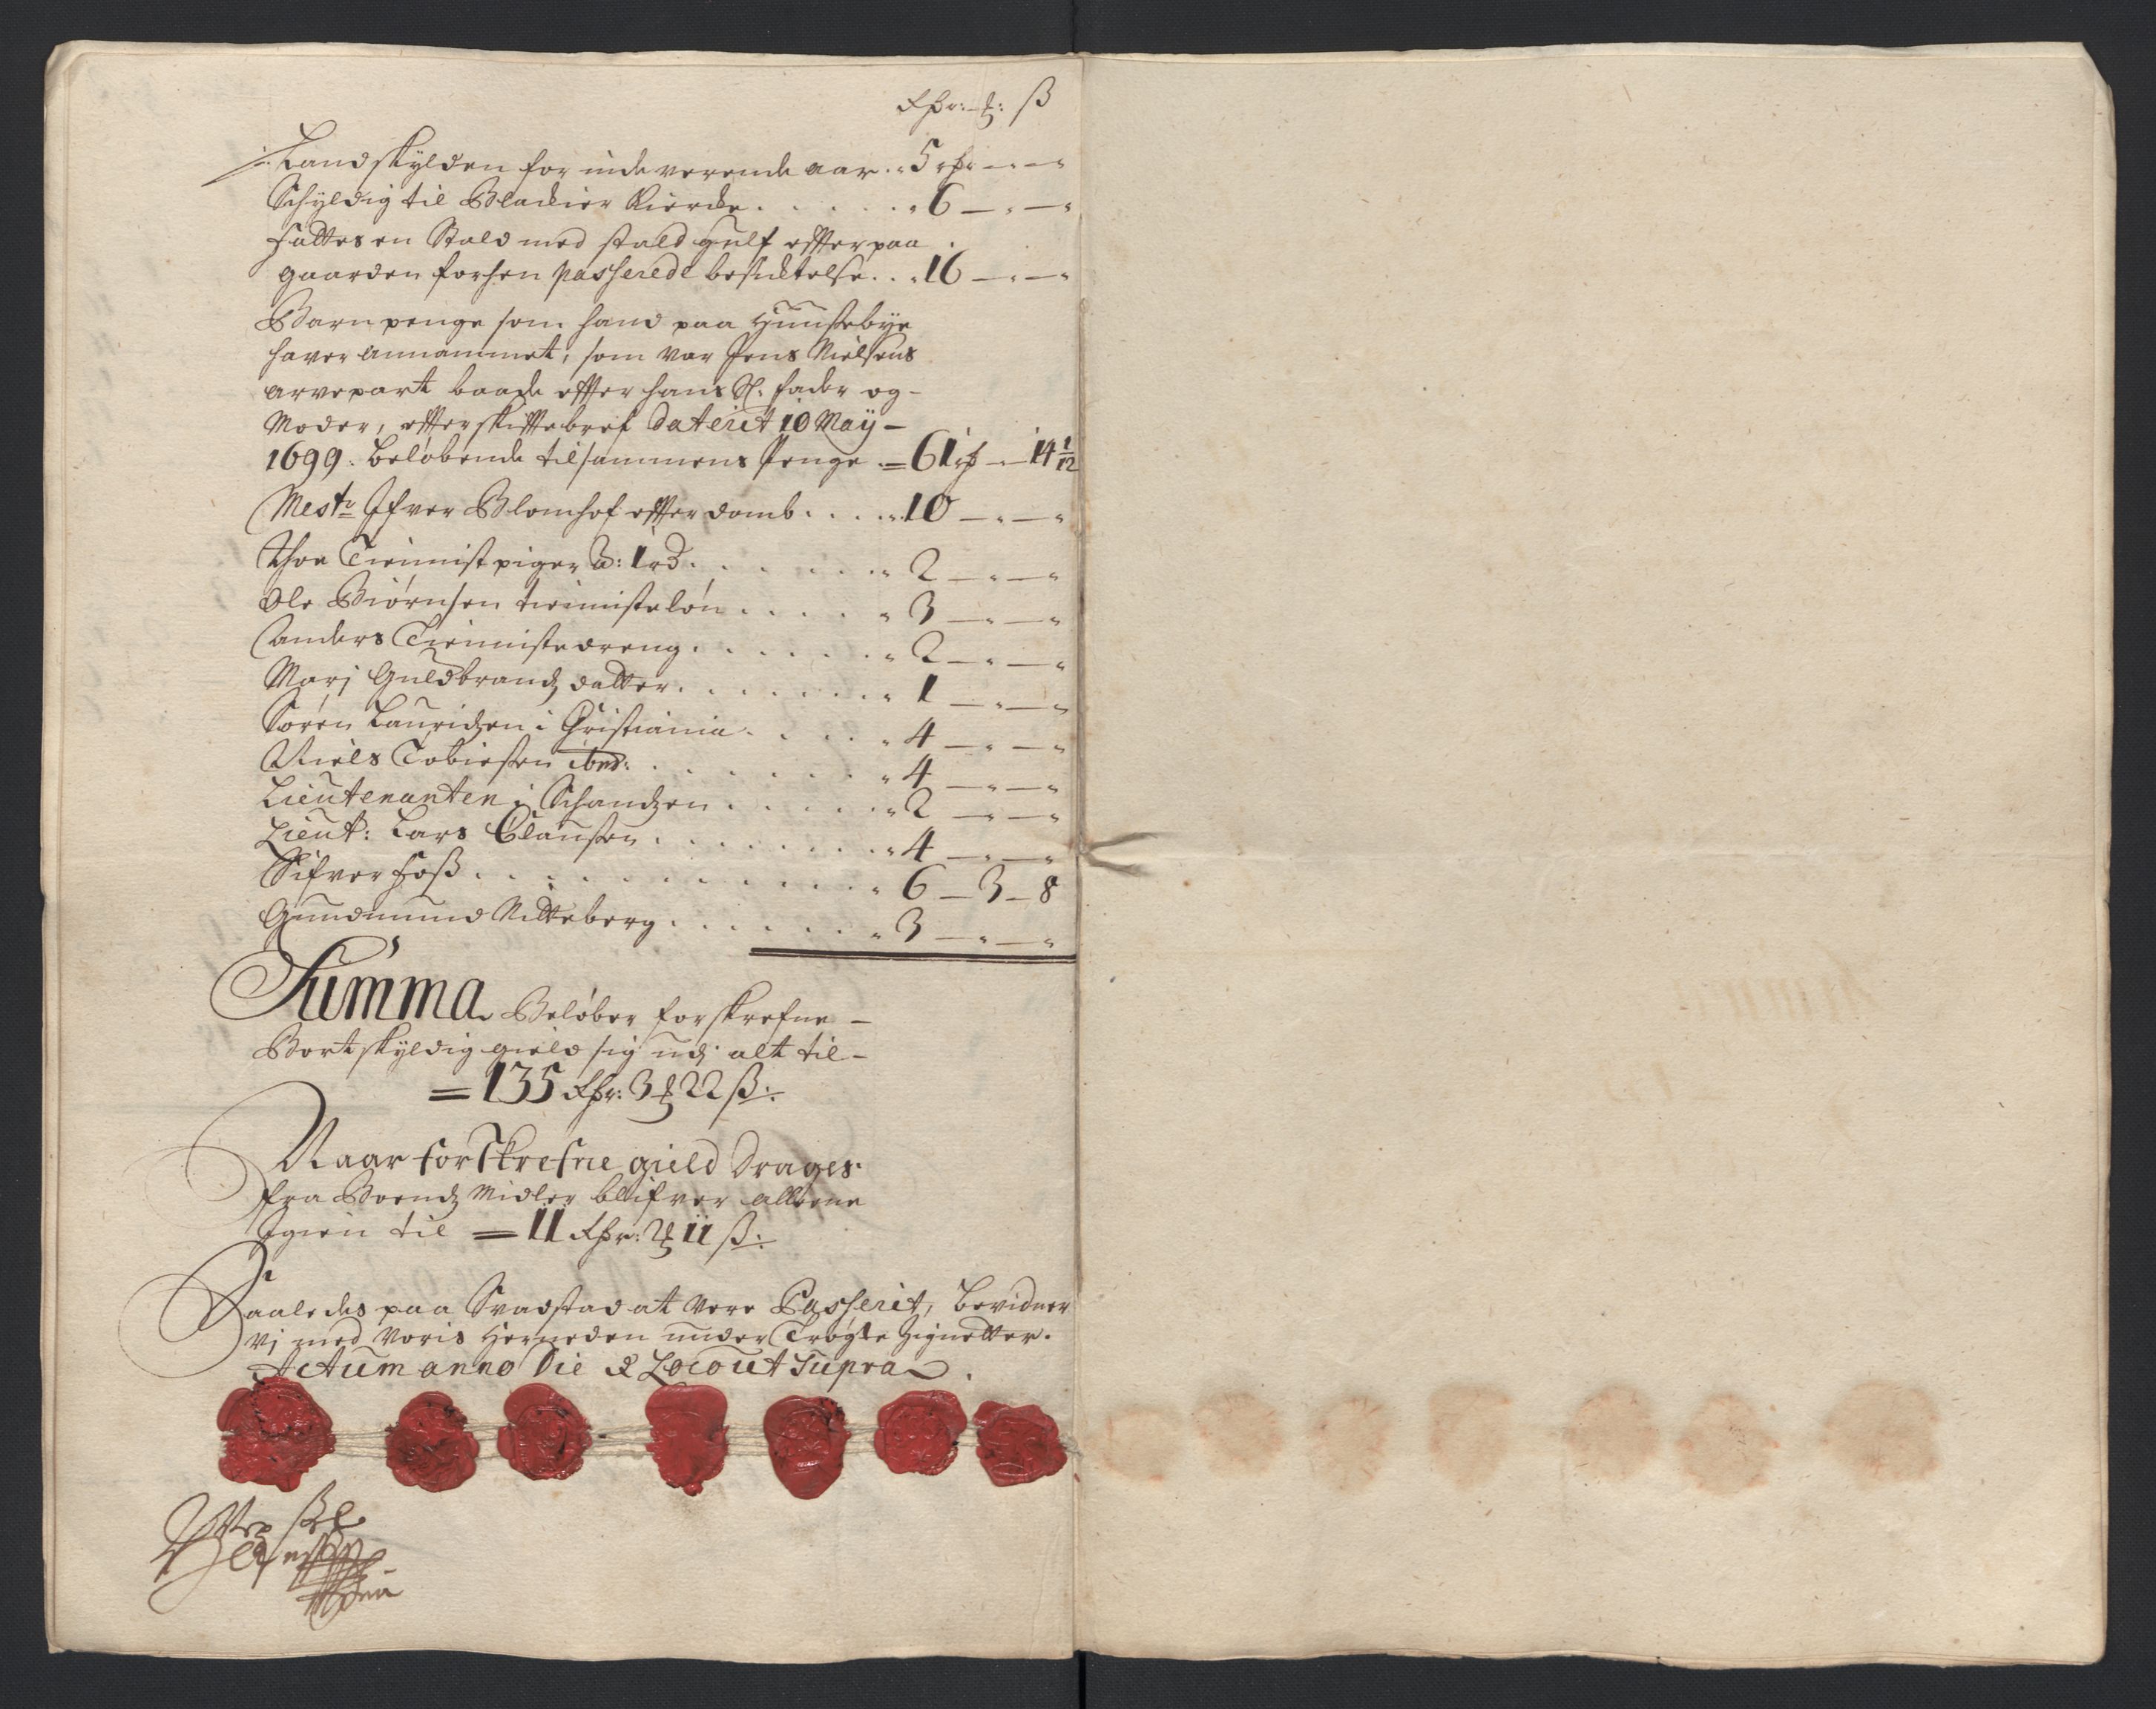 Rdr: ℔: ß
/: Landskylden for inde verende aar . 5 rdr — —
Schyldig til Blackier Kircke . . . . . 6 — —
Fattes en Stald med stald gulf effter paa
gaarden forhen passerede besichtelse . . 16 — —
Barnpenge som hand paa Huusebye
hafver annammet, som var Jens Nielsens
arvepart baade effter hans Sl. fader og
Moder, effter skifftebref daterit 10 Maÿ
1699. beløbende tilsammens Penge = 61 rdr — 14 1/12
Mestr Ifver Blomhof effter domb . . . . 10 — —
Thoe Tienniste piger à: 1 rd . . . . . 2 — —
Ole Biørnsen tienniste løn . . . . . 3 — —
Anders Tienniste dreng . . . . . . 2 — —
Marj Guldbrandz datter . . . . . . 1 — —
Søren Lauridzen i Christiania . . . . 4 — —
Niels Tobiesen ibid: . . . . . . 4 — —
Lieutenanten i Schandzen . . . . . 2 — —
Lieut: Lars Clausen . . . . . . . 4 — —
Sifver Foss . . . . . . . . . 6 — 3 — 8
Gundmund Nitteberg . . . . . . . 3 — —
Summa Beløber forskrefne
Bortskyldig gield sig udj alt til
= 135 Rdr: 3 ℔ 22 ß:
Naar forskrefne gield drages
fra Boendz Midler blifver allEene
Igien til = 11 Rdr: 2 ℔ 11 ß:
Saaledes paa Svadstad at vere Passerit, bevidner
vj med voris Herneden under Trøgte Zignetter.
Actum anno Die & Loco ut Supra